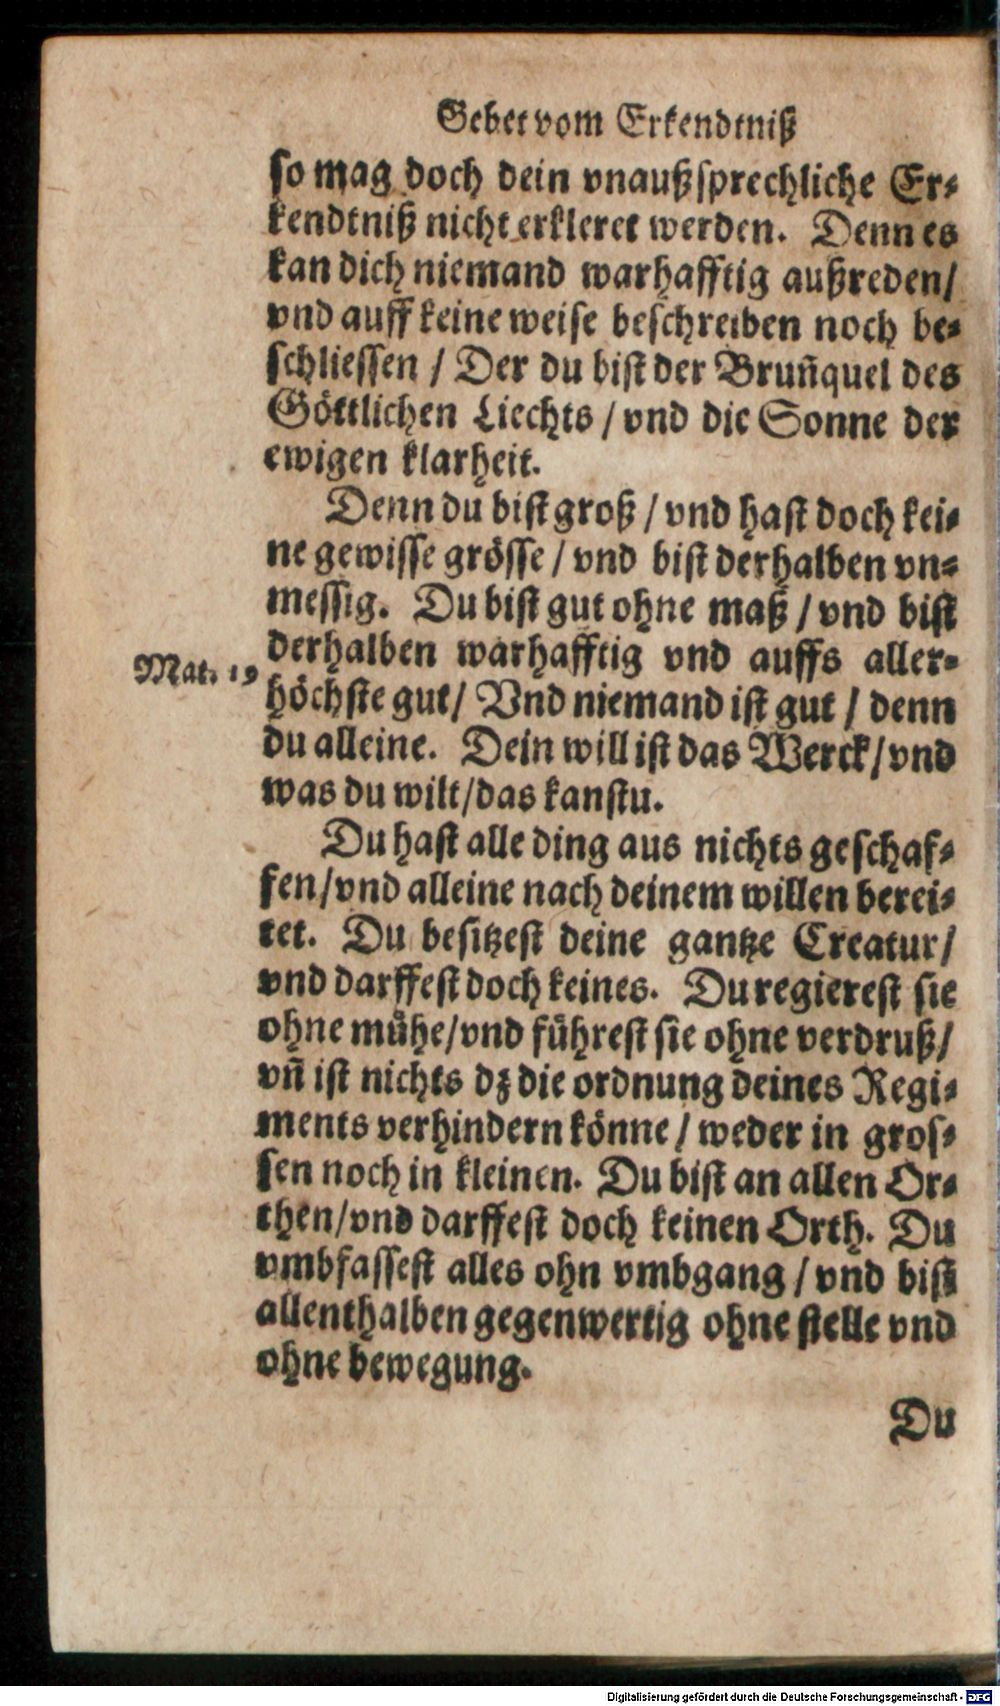 Gebet vom Erkendtniß
so mag doch dein vnaußsprechliche Er⸗
kendtniß nicht erkleret werden. Denn es
kan dich niemand warhafftig außreden/
vnd auff keine weise beschreiben noch be⸗
schliessen / Der du bist der Brun̄quel des
Göttlichen Liechts / vnd die Sonne der
ewigen klarheit.
Denn du bist groß / vnd hast doch kei⸗
ne gewisse grösse / vnd bist derhalben vn⸗
messig. Du bist gut ohne maß / vnd bist
derhalben warhafftig vnd auffs aller⸗
Mat. 19
höchste gut/ Vnd niemand ist gut / denn
du alleine. Dein will ist das Werck/vnd
was du wilt/das kanstu.
Du hast alle ding aus nichts geschaf⸗
fen/vnd alleine nach deinem willen berei⸗
tet. Du besitzest deine gantze Creatur/
vnd darffest doch keines. Du regierest sie
ohne mühe/vnd führest sie ohne verdruß/
vn̄ ist nichts dz die ordnung deines Regi⸗
ments verhindern könne / weder in gros⸗
sen noch in kleinen. Du bist an allen Or⸗
then/vnd darffest doch keinen Orth. Du
vmbfassest alles ohn vmbgang / vnd bist
allenthalben gegenwertig ohne stelle vnd
ohne bewegung.
Du
Digitalisierung gefördert durch die Deutsche Forschungsgemeinschaft - DFG